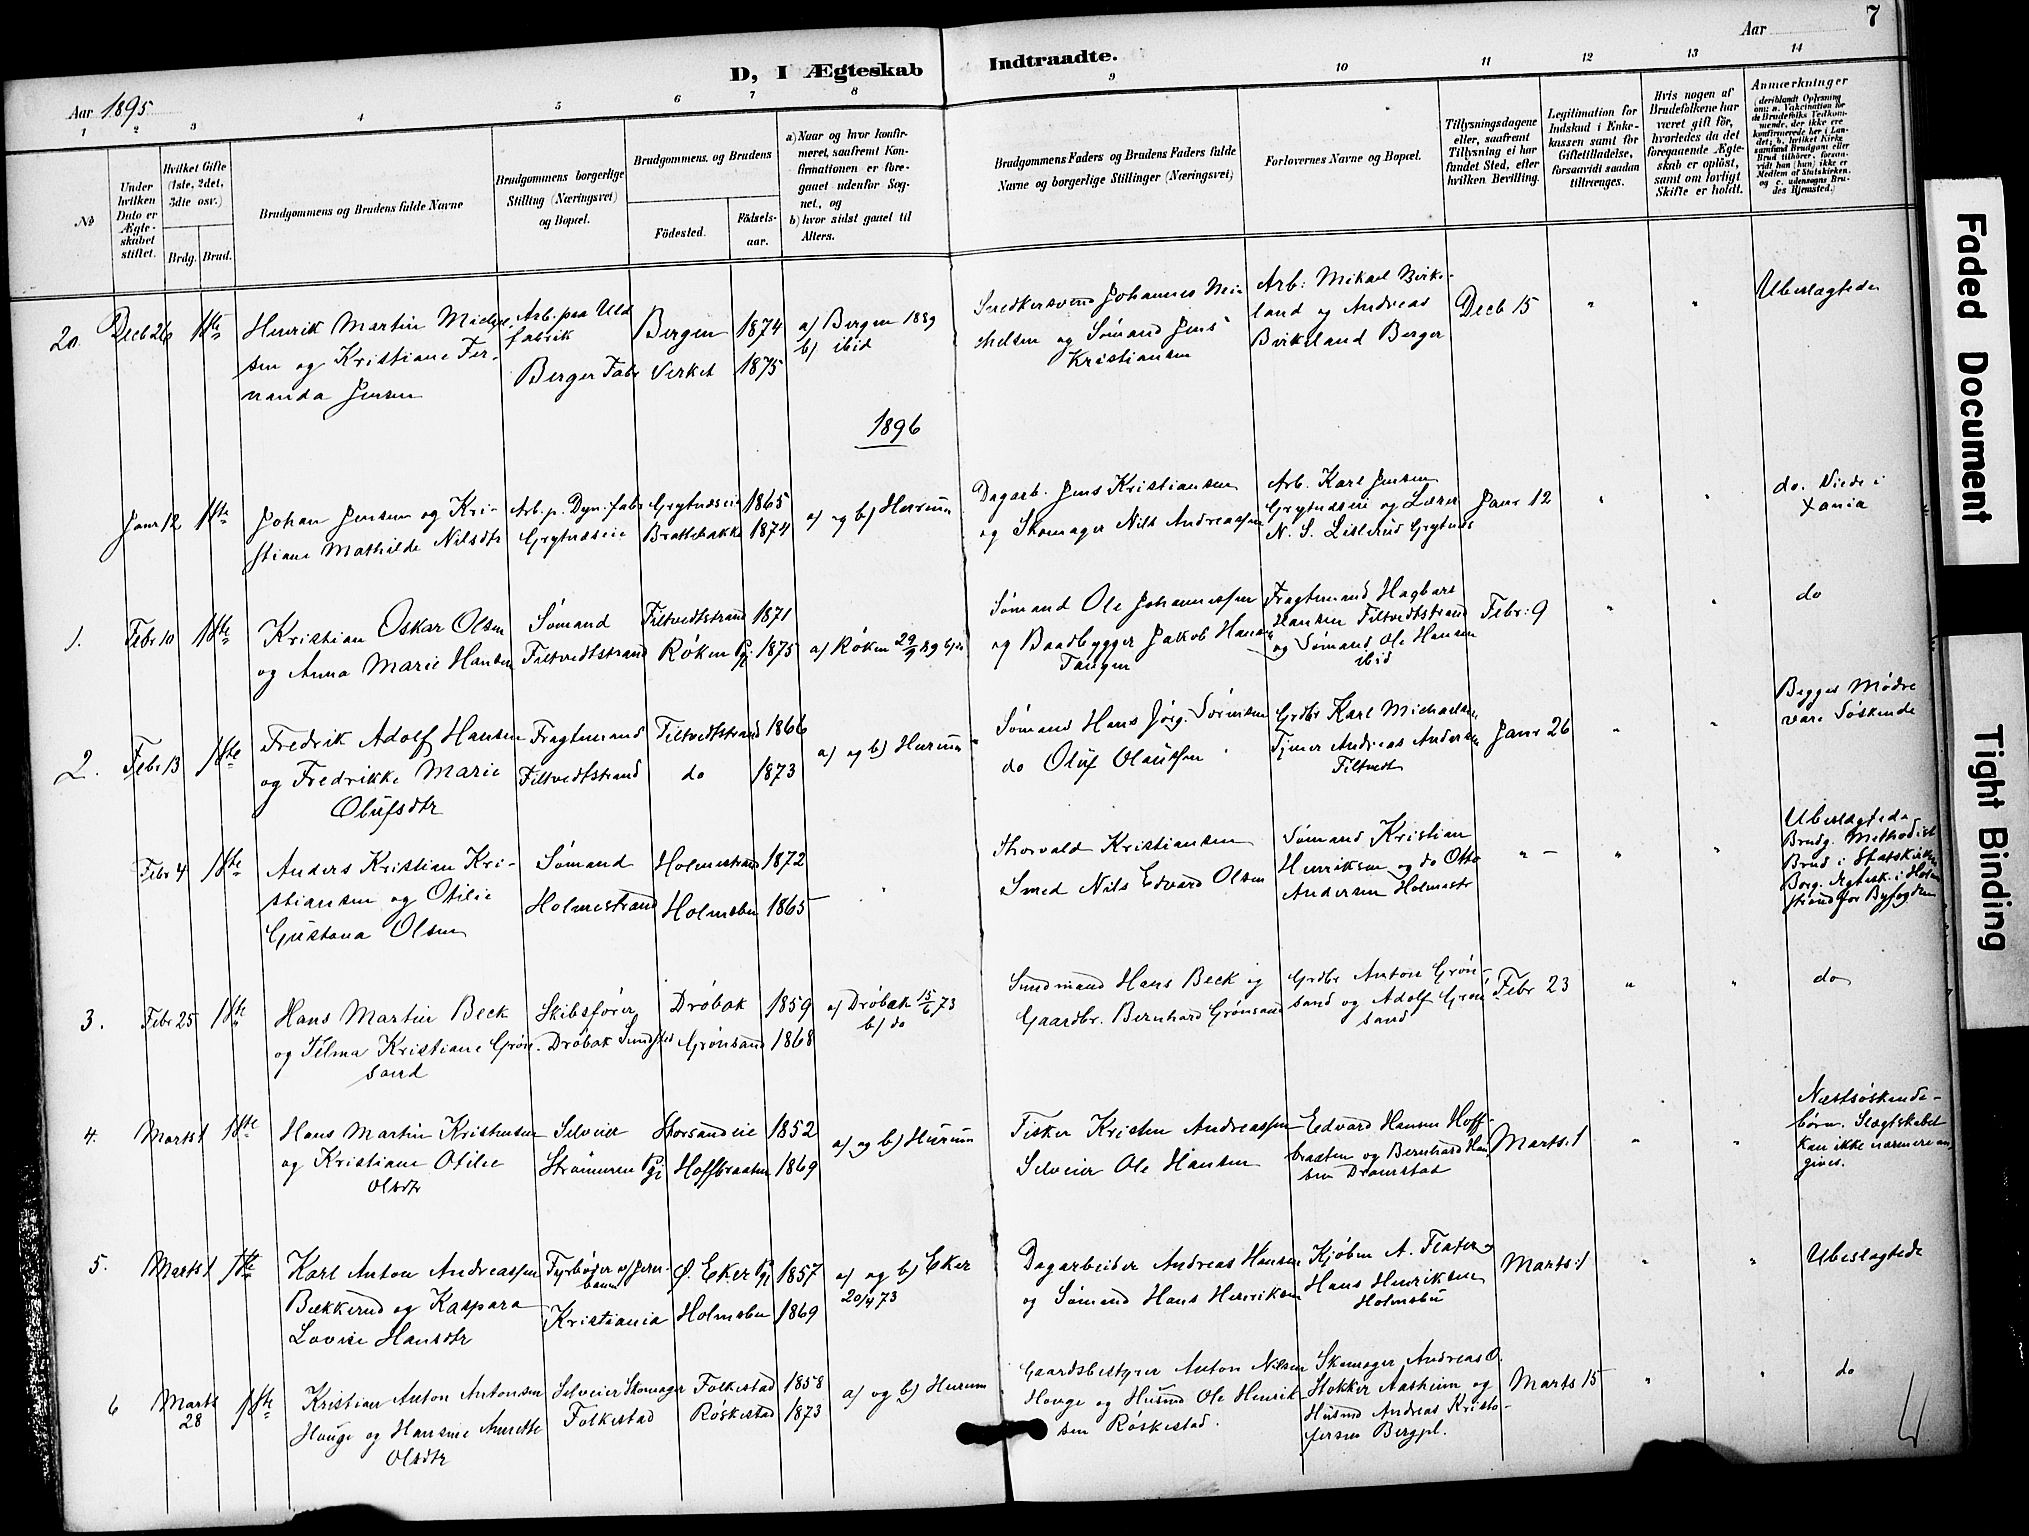 7
Aar 1895.
D, I Ægteskab Indtraadte.
Aar
1 2 3 4 5 6 7 8 9 10 11 12 13 14
No
Under hvilken Dato er Ægteskabet stiftet.
Hvilket Gifte (1ste, 2det, 3dte osv.)
Brdg. Brud.
Brudgommens og Brudens fulde Navne
Brudgommens borgerlige Stilling (Næringsvei) og Bopæl.
Brudgommens og Brudens
Födested.
Födselsaar.
a) Naar og hvor konfirmeret, saafremt Konfirmationen er foregaaet udenfor Sognet, og
b) hvor sidst gaaet til Alters.
Brudgommens Faders og Brudens Faders fulde Navne og borgerlige Stillinger (Næringsvei)
Forlovernes Navne og Bopæl.
Tillysningsdagene eller, saafremt Tillysning ei har fundet Sted, efter hvilken Bevilling.
Legitimation for Indskud i Enkekassen samt for Giftetilladelse, forsaavidt saadan tiltrænges.
Hvis nogen af Brudefolkene har været gift för, hvorledes da det foregaaende Ægteskab er oplöst, samt om lovligt Skifte er holdt.
Anmærkninger
(deriblandt Oplysning om: a. Vakcination for de Brudefolks Vedkommende, der ikke ere konfirmerede her i Landet; b. hvilket Kirkesamfund Brudgom eller Brud tilhörer, forsaavidt han (hun) ikke er Medlem af Statskirken, og c. udensogns Brudes Hjemsted.)
20. Decb 26 1ste Henrik Martin Michelsen og Kristiane Fernanda Jensen
Arb. paa Uldfabrik Berger Fabr
Bergen 1874
Verket 1875
a) Bergen 1889
b) ibid
Snedkersvend Johannes Michelsen og Sømand Jens Kristiansen
Arb: Mikael Birkeland og Andreas Birkeland Berger
Decb 15 " "
Ubeslægtede
1896
Janr 12 1ste Johan Jensen og Kristiane Mathilde Nilsdtr
Arb. p. Dyn. fabr Grytnæseie
Grytnæseie 1865
Brattebakke 1874
a) og b) Hurum
Dagarb. Jens Kristiansen og Skomager Nils Andreassen
Arb. Karl Jensen Grytnæseie og Lærer N. S. Lislerud Grytnæs
Janr 12 " "
do. Viede i Xania
1. Febr 10 1ste Kristian Oskar Olsen og Anna Marie Hansen
Sømand Filtvedtstrand
Filtvedtstrand 1871
Røken Pgj 1875
a) Røken 29/9 89
Sømand Ole Johannessen og Baadbygger Jakob Hansen Tangen
Fragtemand Hagbart Hansen Filtvedtstrand og Sømand Ole Hansen ibid
Febr: 9 " "
do
2. Febr 13 1ste Fredrik Adolf Hansen og Fredrikke Marie Olufsdtr
Fragtemand Filtvedtstrand
Filtvedtstrand 1866
do 1873
a) og b) Hurum
Sømand Hans Jørg. Sørensen
do Oluf Olaussen
Grdbr Karl Michaelsen
Tjener Andreas Andersen Filtvedt
Janr 26 " "
Begges Mødre vare Søskende
Febr 4 1ste Anders Kristian Kristiansen og Otilie Gustava Olsen
Sømand Holmestrand
Holmestrand 1872
Holmsbu 1865
Thorvald Kristiansen
Smed Nils Edvard Olsen
Sømand Kristian Henriksen og do Otto Andersen Holmestr
" — " "
Ubeslægtede
Brudg. Methodist
Brud i Statskirken
Borg. Ægtesk. i Holmstrand for Byfogden
3. Febr 25 1ste Hans Martin Beck og Telma Kristiane Grønsand
Skibsfører Drøbak Sundsted
Drøbak 1859
Grønsand 1868
a) Drøbak 15/6 73
b) do
Sundmand Hans Beck og Gaardbr. Bernhard Grønsand
Grdbr Anton Grønsand og Adolf Grønsand
Febr 23 " "
do
4. Marts 1 1ste Hans Martin Kristensen og Kristiane Otilie Olsdtr
Selveier Strømmen Pgj
Storsandeie 1852
Hoffbraaten 1869
a) og b) Hurum
Fisker Kristen Andreassen
Selveier Ole Hansen
Edvard Hansen Hoffbraaten og Bernhard Hansen Dramstad
Marts: 1 " "
Næstsøskendebørn. Slægtskabet kan ikke nærmere angives.
5. Marts 1 1ste Karl Anton Andreassen Bækkerud og Kaspara Lovise Hansdtr
Fyrbøder v/ Jernbanen Kristiania
Ø. Eker Pgj 1857
Holmsbu 1869
a) og b) Eker
20/4 73
Dagarbeider Andreas Hansen og Sømand Hans Henriksen
Kjøbm A. Flater
Hans Henriksen Holmsbu
Marts: 1 " "
Ubeslægtede
6 Marts 28 1ste Kristian Anton Antonsen Houge og Hansine Annette Olsdtr
Selveier Skomager Folkestad
Folkestad 1858
Røskestad 1873
a) og b) Hurum
Gaardsbestyrer Anton Nilsen Houge og Husmd Ole Henriksen Røskestad.
Skomager Andreas O. Stokker Aasheim og Husmd Andreas Kristofersen Bergpl.
Marts 15 " "
do
Faded Document
Tight Binding